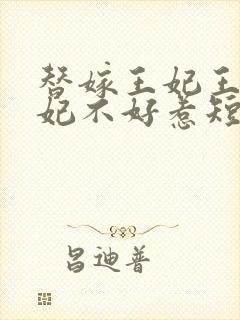 替嫁王妃王
妃不好惹短
昌迪普